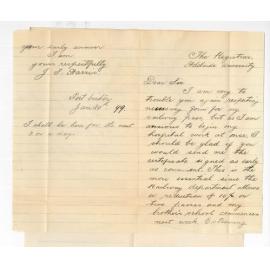 The Registrar,
Adelaide University
Dear Sir
I am sorry to
trouble you again respecting
necessary form for my
railway pass, but as I am
anxious to begin my
hospital work at once I
should be glad if you
would send me the
certificate signed as early
as convenient. This is the
more essential since the
Railway department allows
a reduction of 10% on
two passes and my
brother's school commences
next week. Awaiting
your early answer
I am
yours respectfully
J. S. Harris
Port
Jan 20th 99.
I shall be here for the next
2 or 3 days